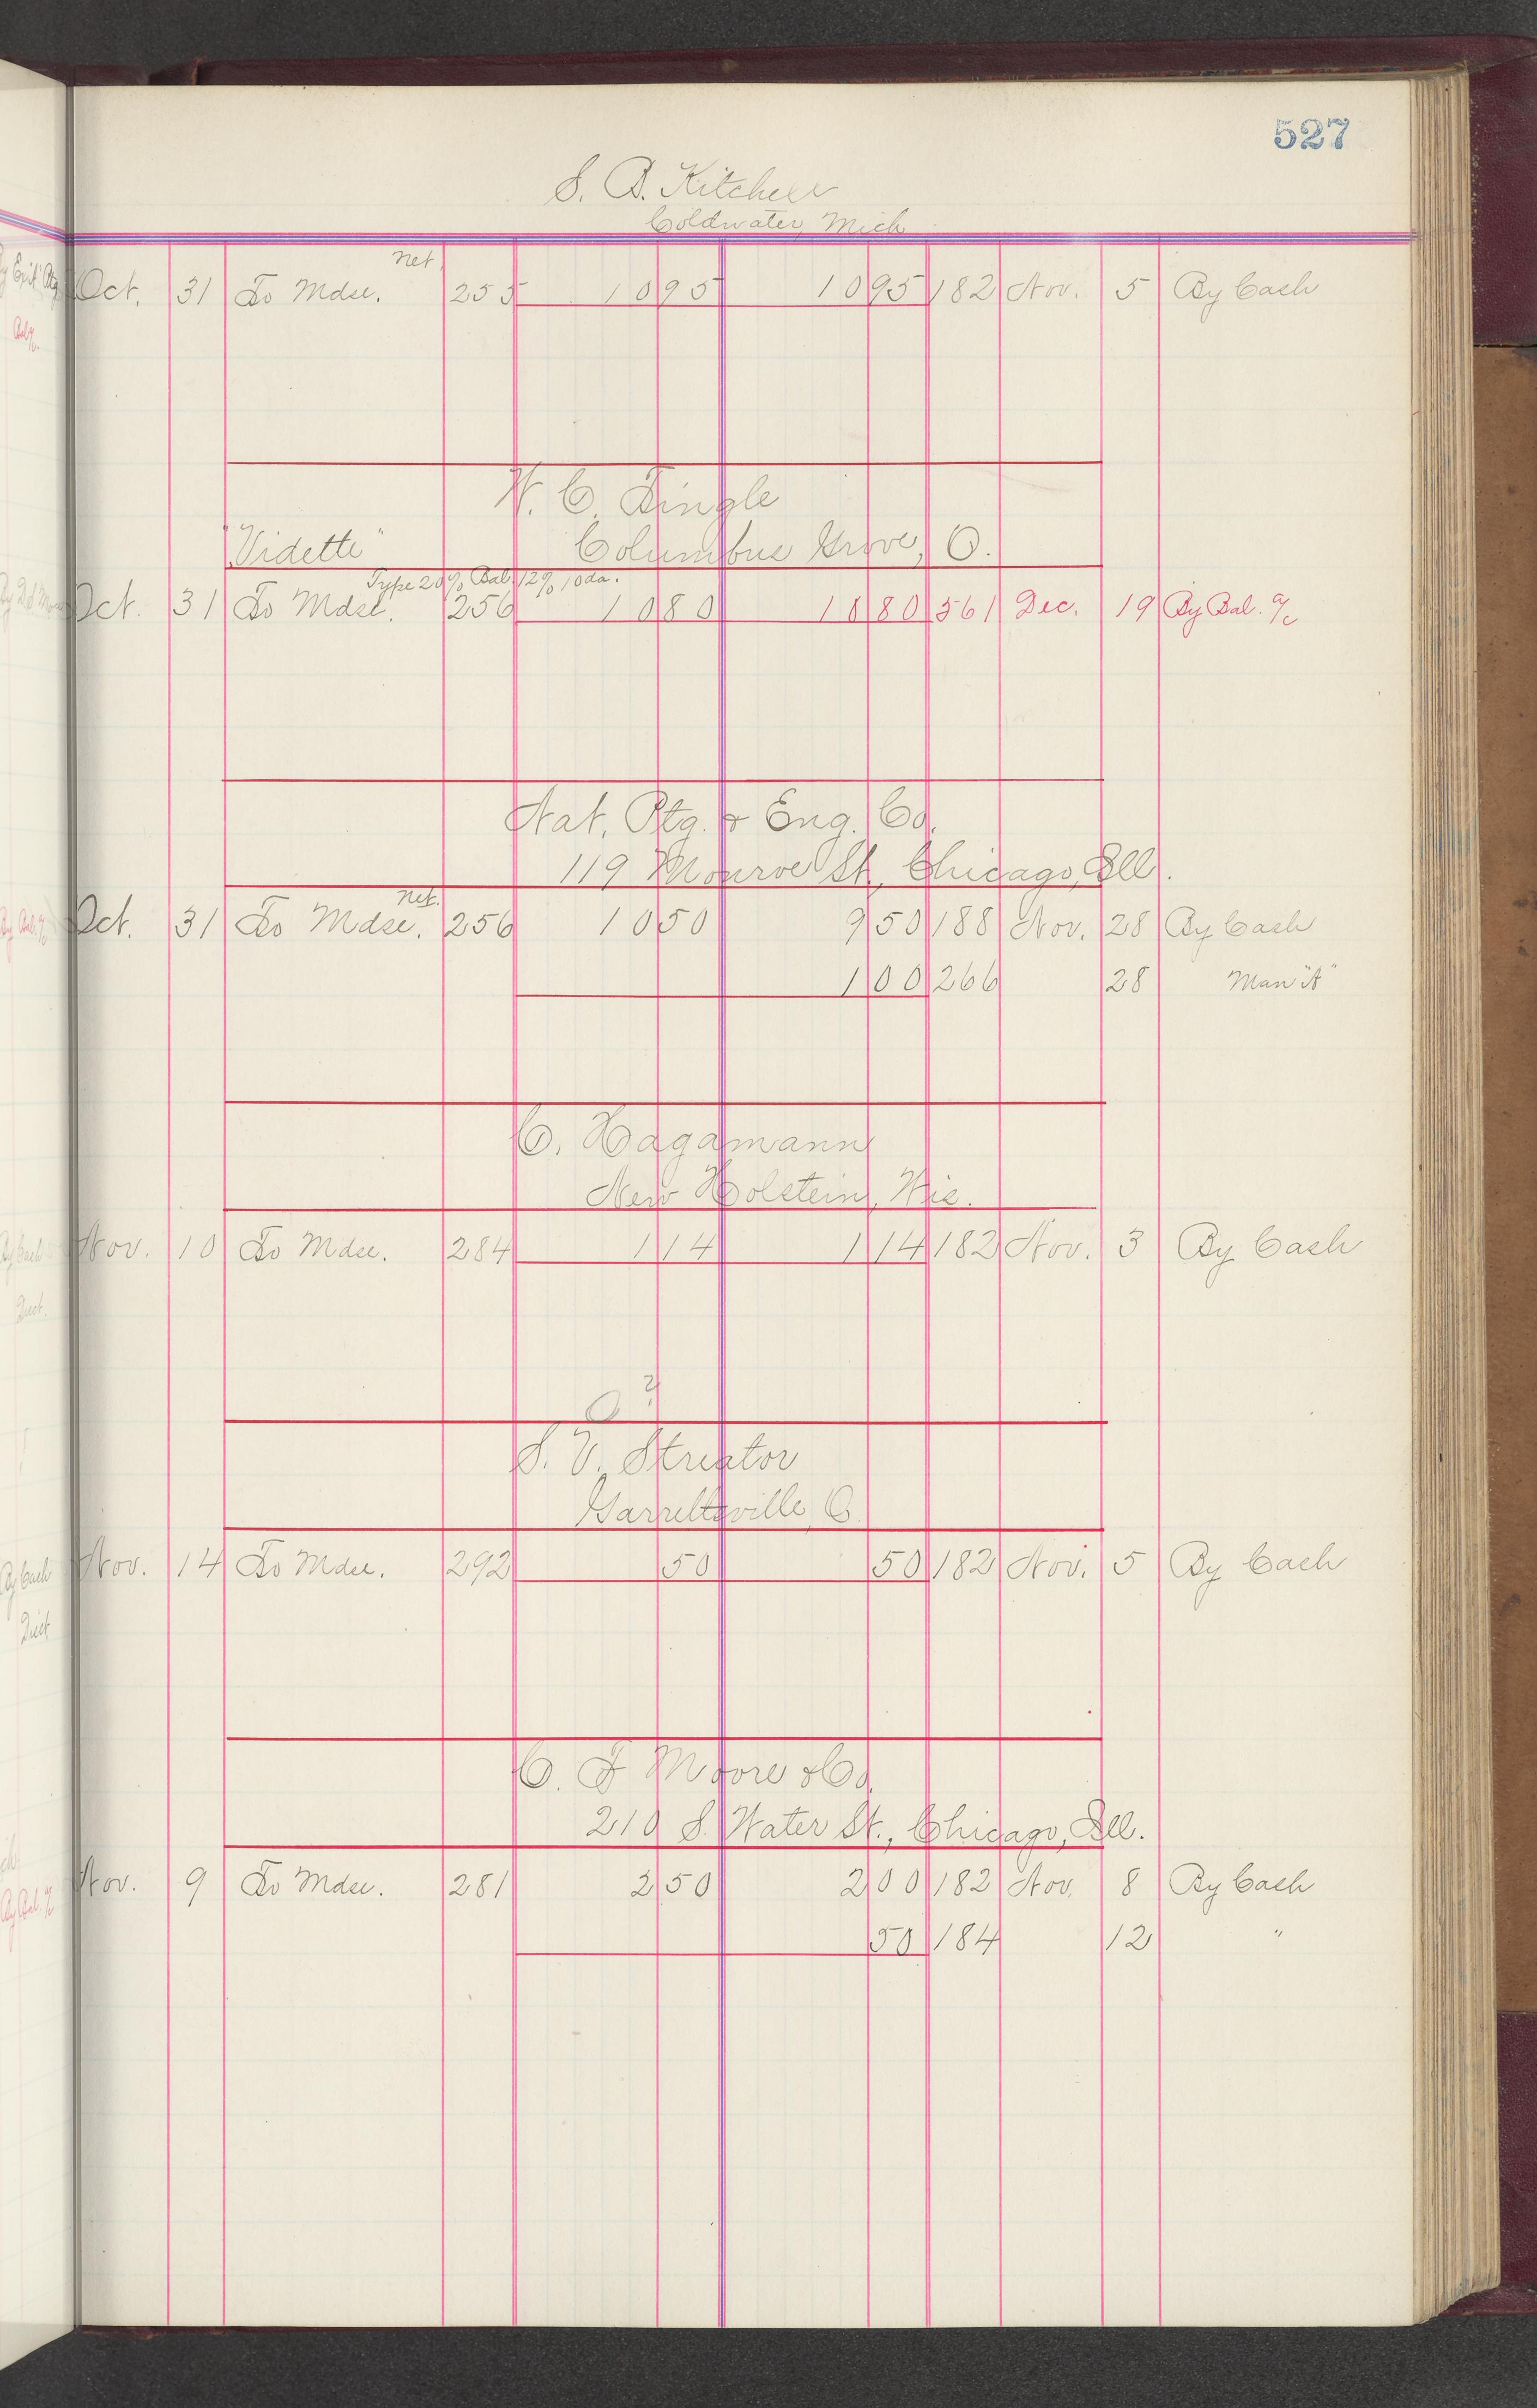 527
S. B. Kitchel
Coldwater, Mich
net.
Oct. 31 To Mdse. 255 10 95 10 95 182 Nov. 5 By Cash
W. C. Tingle
"Vidette" Columbus Grove, O.
Type 20% Bal. 12% 10 da.
Oct. 31 To Mdse. 256 10 80 10 80 561 Dec. 19 By Bal. a/c
Nat. Ptg. & Eng. Co.
119 Monroe St., Chicago, Ill.
net.
Oct. 31 To Mdse. 256 10 50 9 50 188 Nov. 28 By Cash
1 00 266 28 Man "A"
C. Hagamann
New Holstein, Wis.
Nov. 10 To Mdse. 284 1 14 1 14 182 Nov. 3 By Cash
O ?
S. V. Streator
Garrettsville, O.
Nov. 14 To Mdse. 292 50 50 182 Nov. 5 By Cash
C. F Moore & Co.
210 S. Water St., Chicago, Ill.
Nov. 9 To Mdse. 281 2 50 2 00 182 Nov. 8 By Cash
50 184 12 "